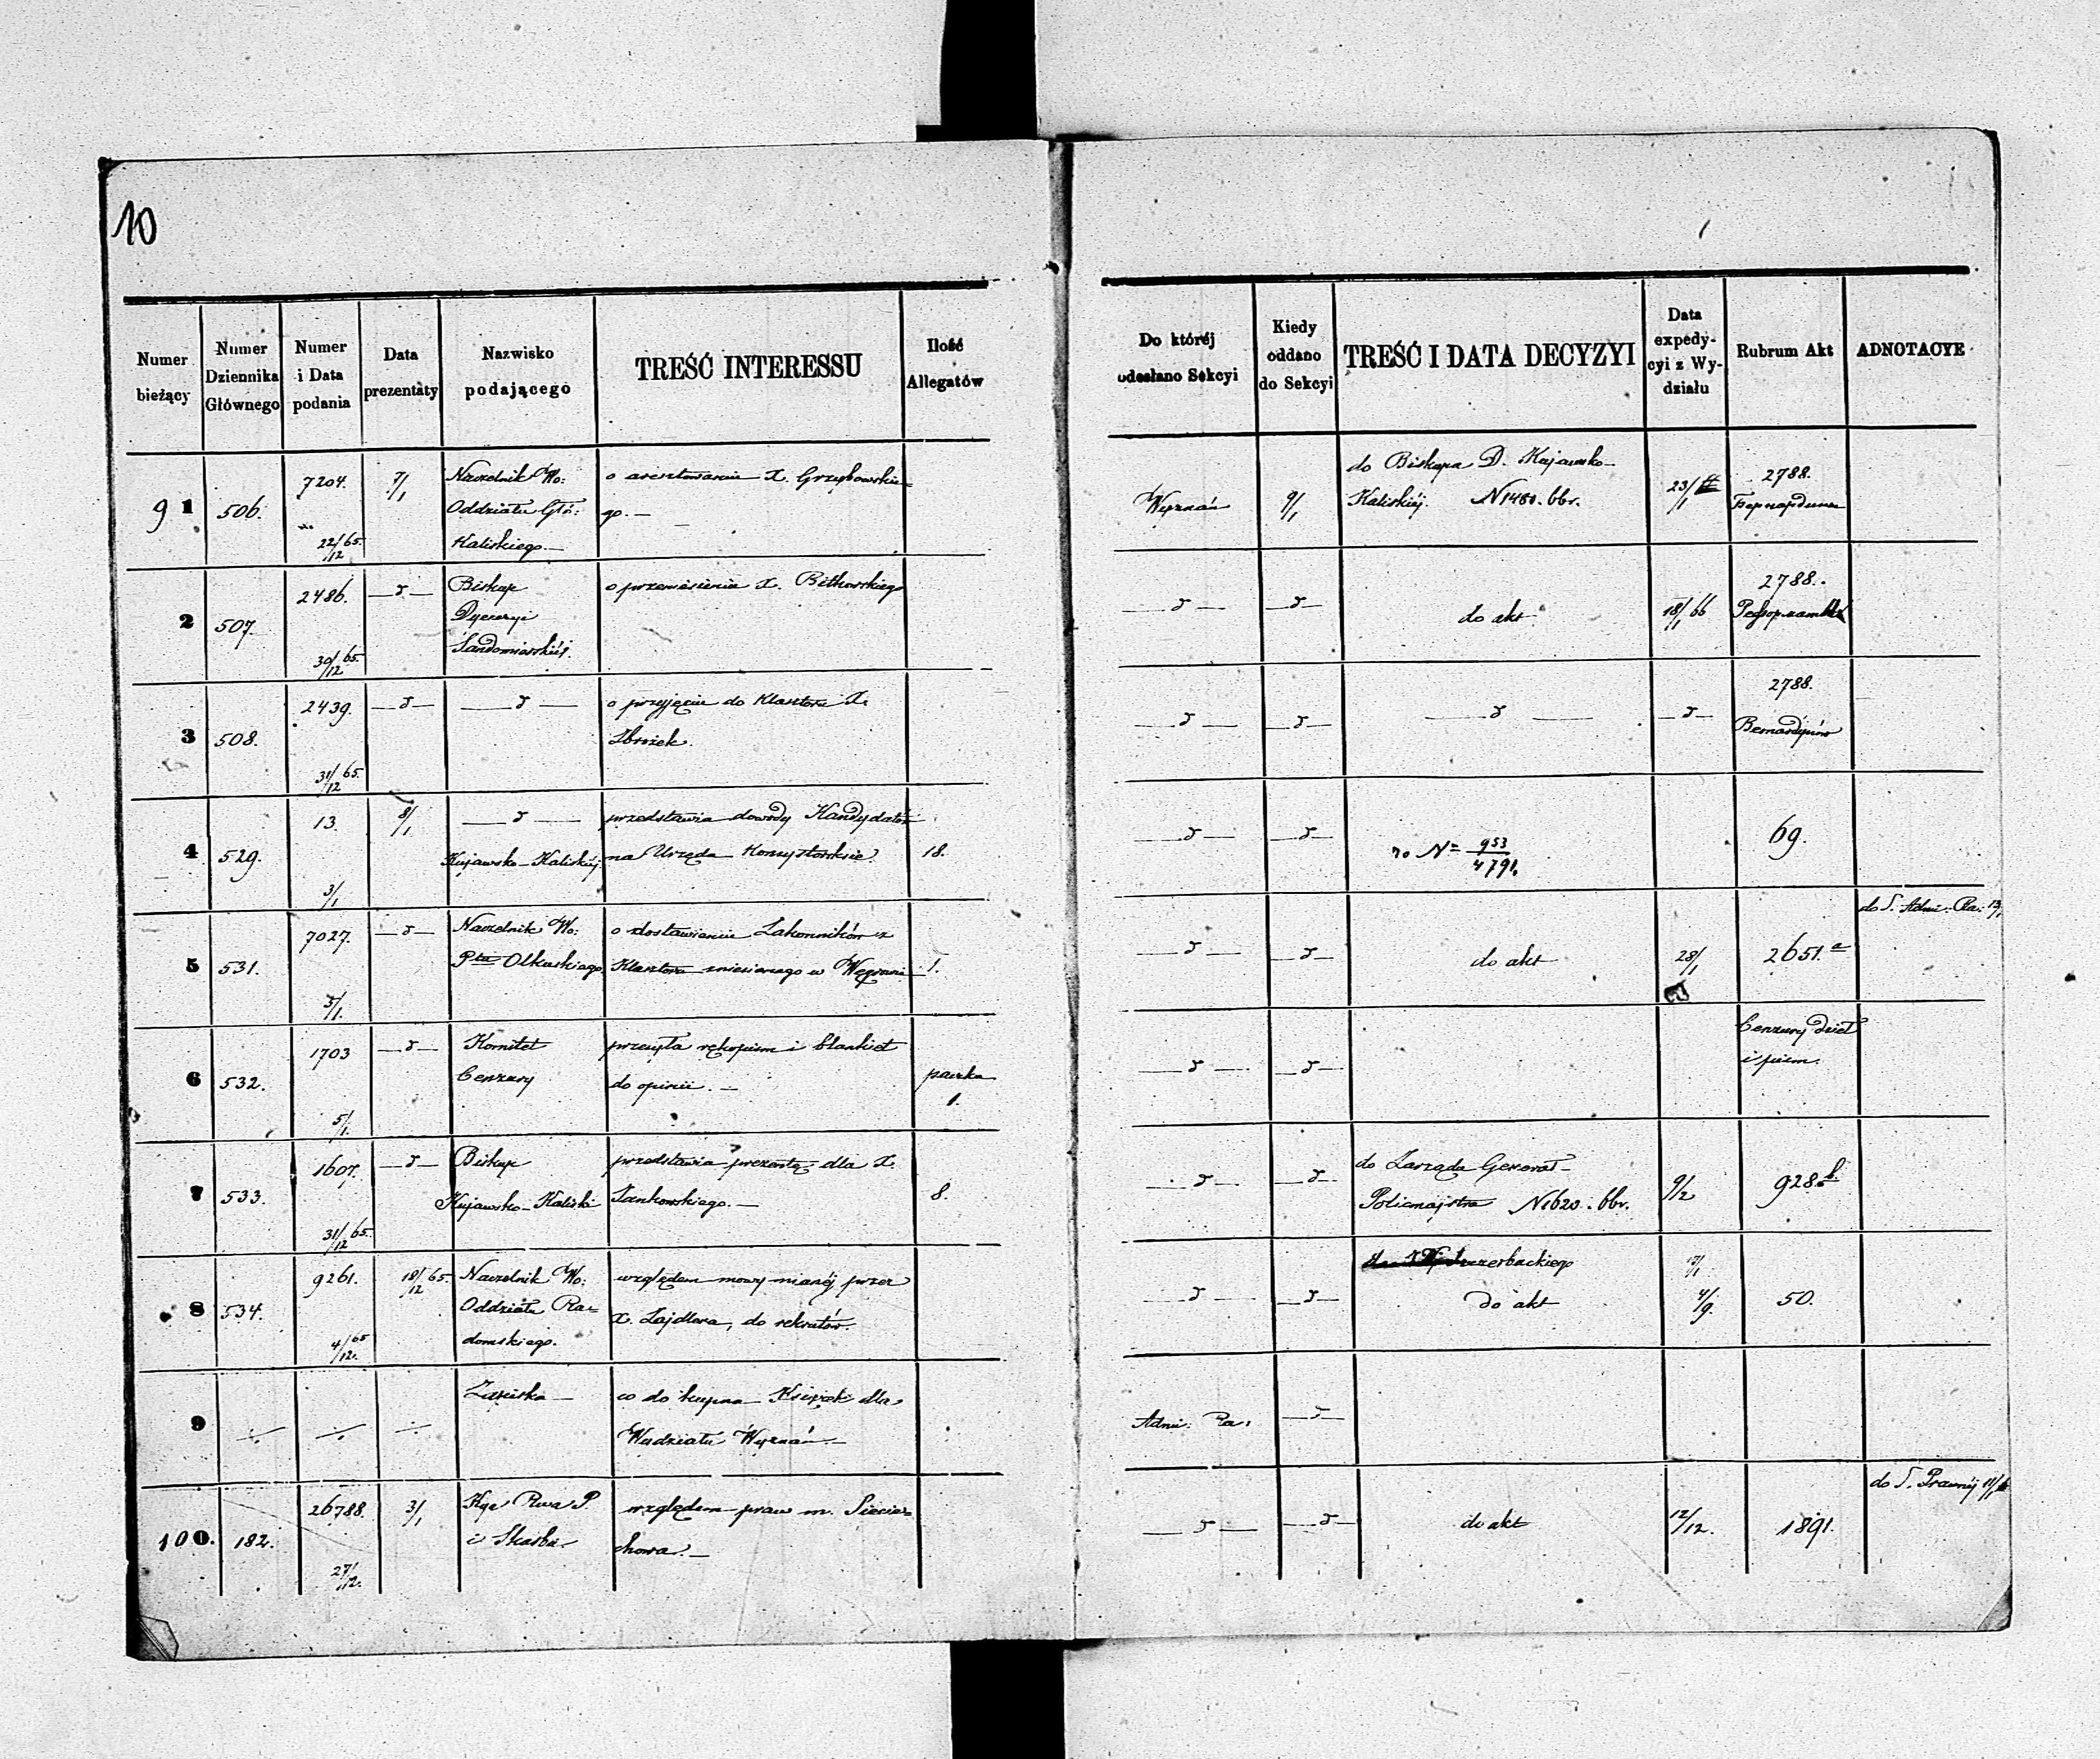 10
Numer bieżący
Numer Dziennika Głównego
Numer i Data podania
Data prezentaty
Nazwisko podającego
TREŚĆ INTERESSU
Ilość Allegatów
Do któréj odesłano Sekcyi
Kiedy oddano do Sekcyi
TREŚĆ I DATA DECYZYI
Data expedycyi z Wydziału
Rubrum Akt
ADNOTACYE
91 506. 7204. 22/12 65. 7/1
Naczelnik Wo:
Oddziału Głó:
Kaliskiego.—
o aresztowanie X. Grzybowskie=
go.—
Wyznań 9/1
do Biskupa D. Kujawsko—
Kaliskiéj. N1480. bbr.
23/1
2788.
2 507. 2486. 30/12 65. —d—
Biskup
Dyecezyi
Sandomirskiéj.
o przeniesienie X. Bitkowskiego
—d— —d—
do akt
18/1 66
2788.
3 508. 2439. 31/12 65. —d— —d—
o przyjęcie do Klasztoru X.
—d— —d— —d— —d—
2788.
Bernardynów
4 529. 13. 3/1 8/1
—d—
Kujawsko-Kaliskiéj
przedstawia dowody Kandydatów
na Urzęda Konsystorskie.
18.
—d— —d—
N= 953
4791.
69.
5 531. 7027. 5/1. —d—
Naczelnik Wo:
Ptu Olkuskiego
o dostawienie Zakonników z
Klasztoru zniesionego w
1.
—d— —d—
do akt
28/1
2651.a
do S. Admi: Ra: 13/1
6 532. 1703 5/1. —d—
Komitet
Cenzury
przesyła rękopism i blankiet
do opinii.—
paczka
1.
—d— —d—
Cenzury dzieł
i pism.
7 533. 1607. 31/12 65. —d—
Biskup
Kujawsko-Kaliski
przedstawia prezentę dla X.
Jankowskiego.—
8.
—d— —d—
do Zarządu Generał—
Policmajstra N1620. bbr.
9/2
928.b
8 534. 9261. 4/12 65 18/12 65.
Naczelnik Wo:
Oddziału Ra=
domskiego.
względem mowy mianéj przez
X. Zajdlera, do rekrutów.
—d— —d—
do akt
4/9.
50.
9
co do kupna Książek dla
Wydziału Wyznań.—
Admi: Ra: —d—
100. 182. 26788. 27/12. 3/1
Kya Rwa P.
i Skarbu
względem praw m. Siecie=
chowa.—
—d— —d—
do akt
12/12.
1891.
do S. Prawnéj